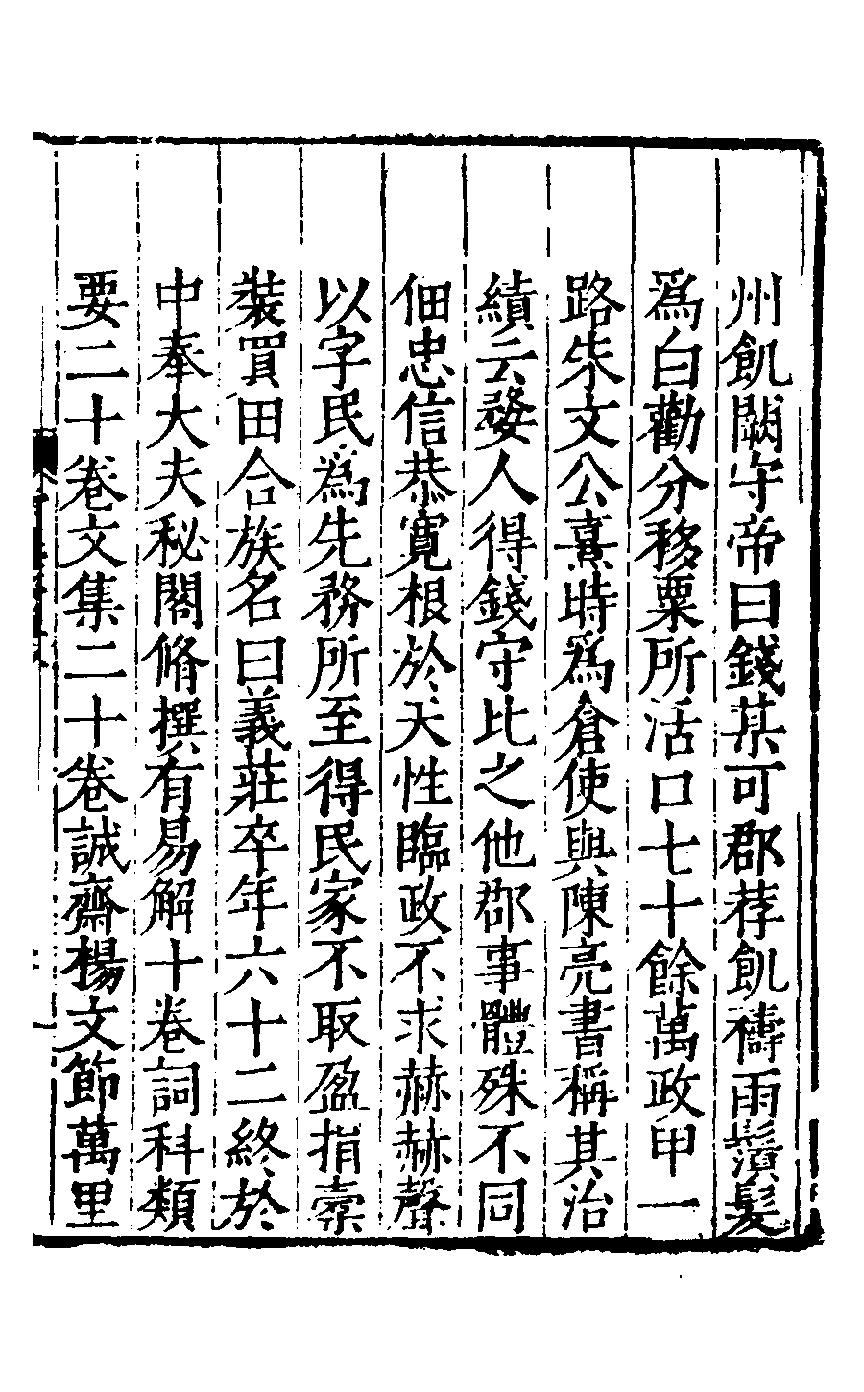 州飢闕守帝曰錢某可郡荐飢禱雨鬚髮
爲白勸分移粟所活口七十餘萬政甲一
路朱文公熹時爲倉使與陳亮書稱其治
績云婺人得錢守比之他郡事體殊不同
佃忠信恭寛根於天性臨政不求赫赫聲
以字民爲先務所至得民家不取盈指橐
裝買田合族名曰義莊卒年六十二終於
中奉大夫秘閣脩撰有易解十卷詞科類
要二十卷文集二十卷誠齋楊文節萬里